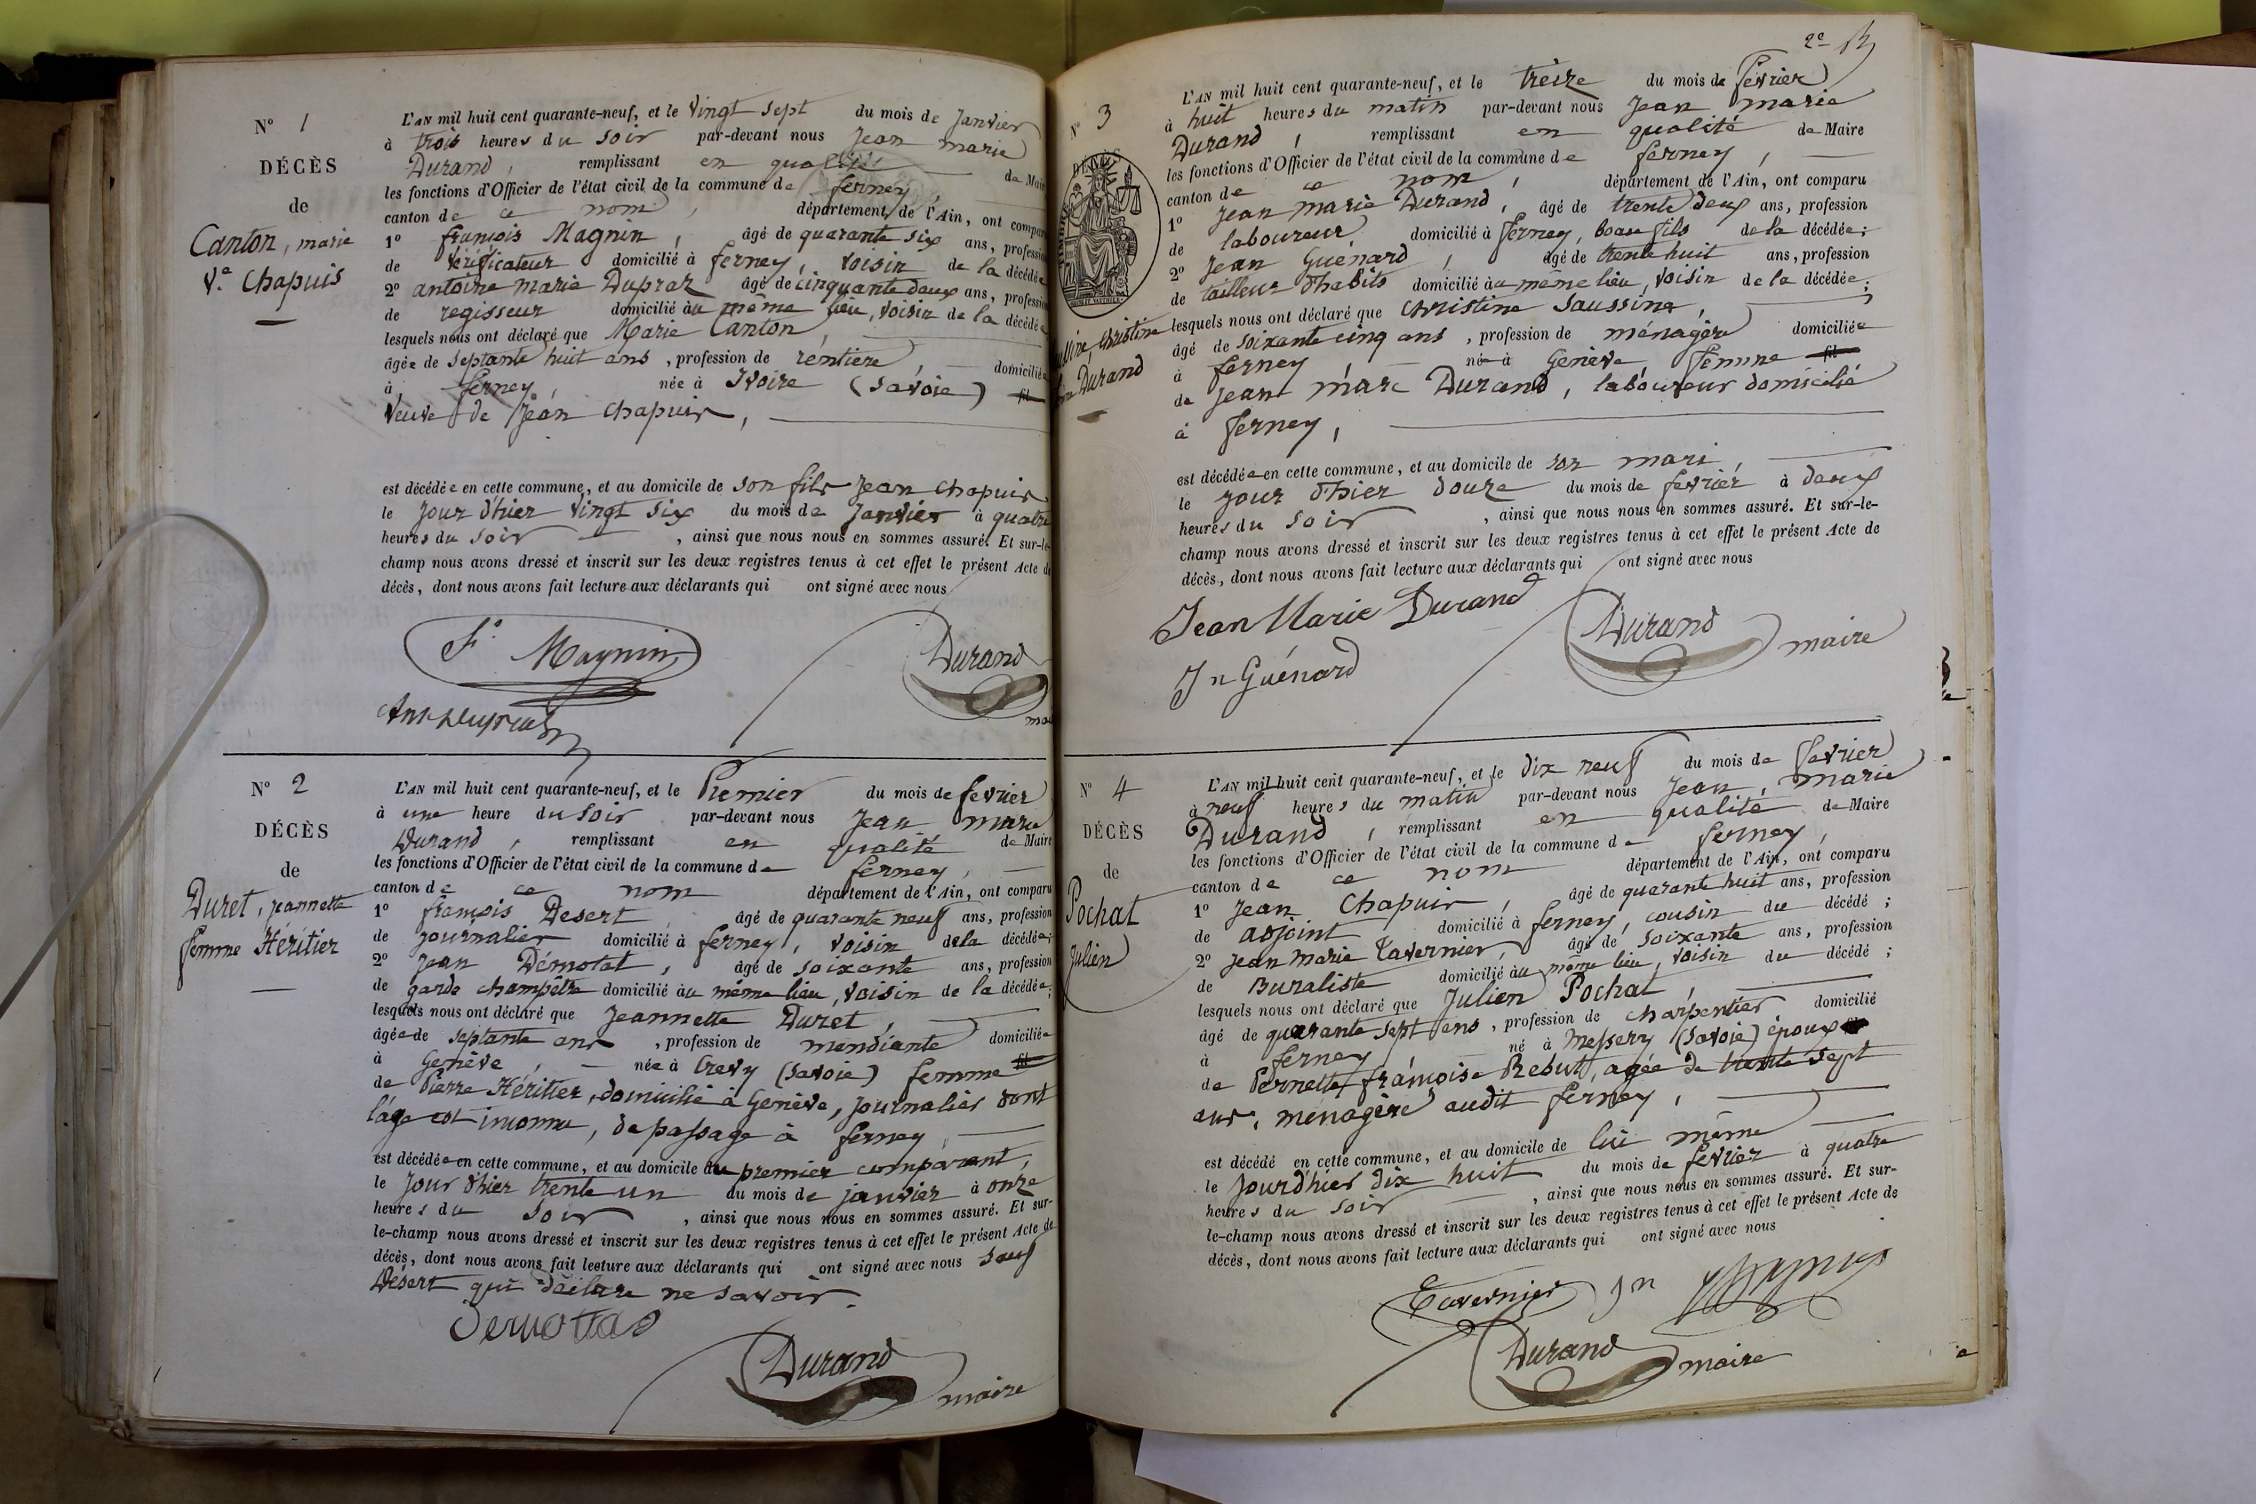 N° 1
DÉCÈS
de
Canton, marie
Ve Chapuis
L'AN mil huit cent quarante-neuf, et le vingt sept du mois de janvier
à trois heures du soir par-devant nous jean marie
Durand, remplissant en qualité de Mair
les fonctions d'Officier de l'état civil de la commune de ferney,
canton de ce nom, département de l'Ain, ont compar
1° françois Magnin, âgé de quarante six ans, profession
de vérificateur domicilié à ferney, voisin de la décédée
2° antoine marie Duprez âgé de cinquante deux ans, profession
de regisseur domicilié au même lieu, voisin de la décédé
lesquels nous ont déclaré que Marie Canton,
âgée de septante huit ans, profession de rentiere, domiciliée
à ferney, née à Ivoire (Savoie) fil
veuve de Jean Chapuis,
est décédée en cette commune, et au domicile de son fils Jean Chapuis
le jour d'hier vingt six du mois de janvier à quatre
heures du soir, ainsi que nous nous en sommes assuré. Et sur-le-
champ nous avons dressé et inscrit sur les deux registres tenus à cet effet le présent Acte de
décès, dont nous avons fait lecture aux déclarants qui ont signé avec nous
Fs Magnin
Durand
N° 2
DÉCÈS
de
Duret, jeannette
femme Héritier
L'AN mil huit cent quarante-neuf, et le Premier du mois de fevrier
à une heure du soir par-devant nous jean marie
Durand, remplissant en qualité de Maire
les fonctions d'Officier de l'état civil de la commune de ferney,
canton de ce nom département de l'Ain, ont comparu
1° françois Desert âgé de quarante neuf ans, profession
de journalier domicilié à ferney, voisin de la décédée;
2° jean Démotat, âgé de soixante ans, profession
de garde champêtre domicilié au même lieu, voisin de la décédée;
lesquels nous ont déclaré que Jeannette Duret,
âgée de septante ans, profession de mendiante domiciliée
à Genève, née à Crevy (Savoie) femme fil
de Pierre Héritier, domicilié à Genève, journalier dont
l'âge est inconnu, de passage à ferney,
est décédée en cette commune, et au domicile du premier comparant,
le jour d'hier trente un du mois de janvier à onze
heures du soir, ainsi que nous nous en sommes assuré. Et sur-
le-champ nous avons dressé et inscrit sur les deux registres tenus à cet effet le présent Acte de
décès, dont nous avons fait lecture aux déclarants qui ont signé avec nous sauf
Désert qui déclare ne savoir.
Durand
maire
2e
N° 3
DÉCÈS
Christine
Durand
L'AN mil huit cent quarante-neuf, et le treize du mois de février
à huit heures du matin par-devant nous jean marie
Durand, remplissant en qualité de Maire
les fonctions d'Officier de l'état civil de la commune de ferney,
canton de ce nom, département de l'Ain, ont comparu
1° jean marie Durand, âgé de trente deux ans, profession
de laboureur domicilié à ferney, beau fils de la décédée;
2° jean Guénard, âgé de trente huit ans, profession
de tailleur d'habits domicilié au même lieu, voisin de la décédée;
lesquels nous ont déclaré que Christine Saussine,
âgé de soixante cinq ans, profession de ménagère domiciliée
à ferney née à Genève femme fil
de jean marc Durand, laboureur domicilié
à ferney,
est décédée en cette commune, et au domicile de son mari,
le jour d'hier douze du mois de fevrier à deux
heures du soir, ainsi que nous nous en sommes assuré. Et sur-le-
champ nous avons dressé et inscrit sur les deux registres tenus à cet effet le présent Acte de
décès, dont nous avons fait lecture aux déclarants qui ont signé avec nous
Jean Marie Durand
Jn Guénard
Durand
maire
N° 4
DÉCÈS
de
Pochat
Julien
L'AN mil huit cent quarante-neuf, et le dix neuf du mois de fevrier
à neuf heures du matin par-devant nous jean, marie
Durand, remplissant en qualité de Maire
les fonctions d'Officier de l'état civil de la commune de ferney,
canton de ce nom département de l'Ain, ont comparu
1° jean Chapuis, âgé de quarante huit ans, profession
de adjoint domicilié à ferney, cousin du décédé;
2° jean marie Tavernier, âgé de soixante ans, profession
de Buraliste domicilié au même lieu, voisin du décédé;
lesquels nous ont déclaré que Julien Pochat,
âgé de quarante sept ans, profession de charpentier domicilié
à ferney né à Messery (Savoie) époux
de Pernette françoise Rebut, agée de trente sept
ans, ménagère audit ferney,
est décédé en cette commune, et au domicile de lui même
le jour d'hier dix huit du mois de fevrier à quatre
heures du soir, ainsi que nous nous en sommes assuré. Et sur-
le-champ nous avons dressé et inscrit sur les deux registres tenus à cet effet le présent Acte de
décès, dont nous avons fait lecture aux déclarants qui ont signé avec nous
Tavernier Jn Chapuis
Durand
maire